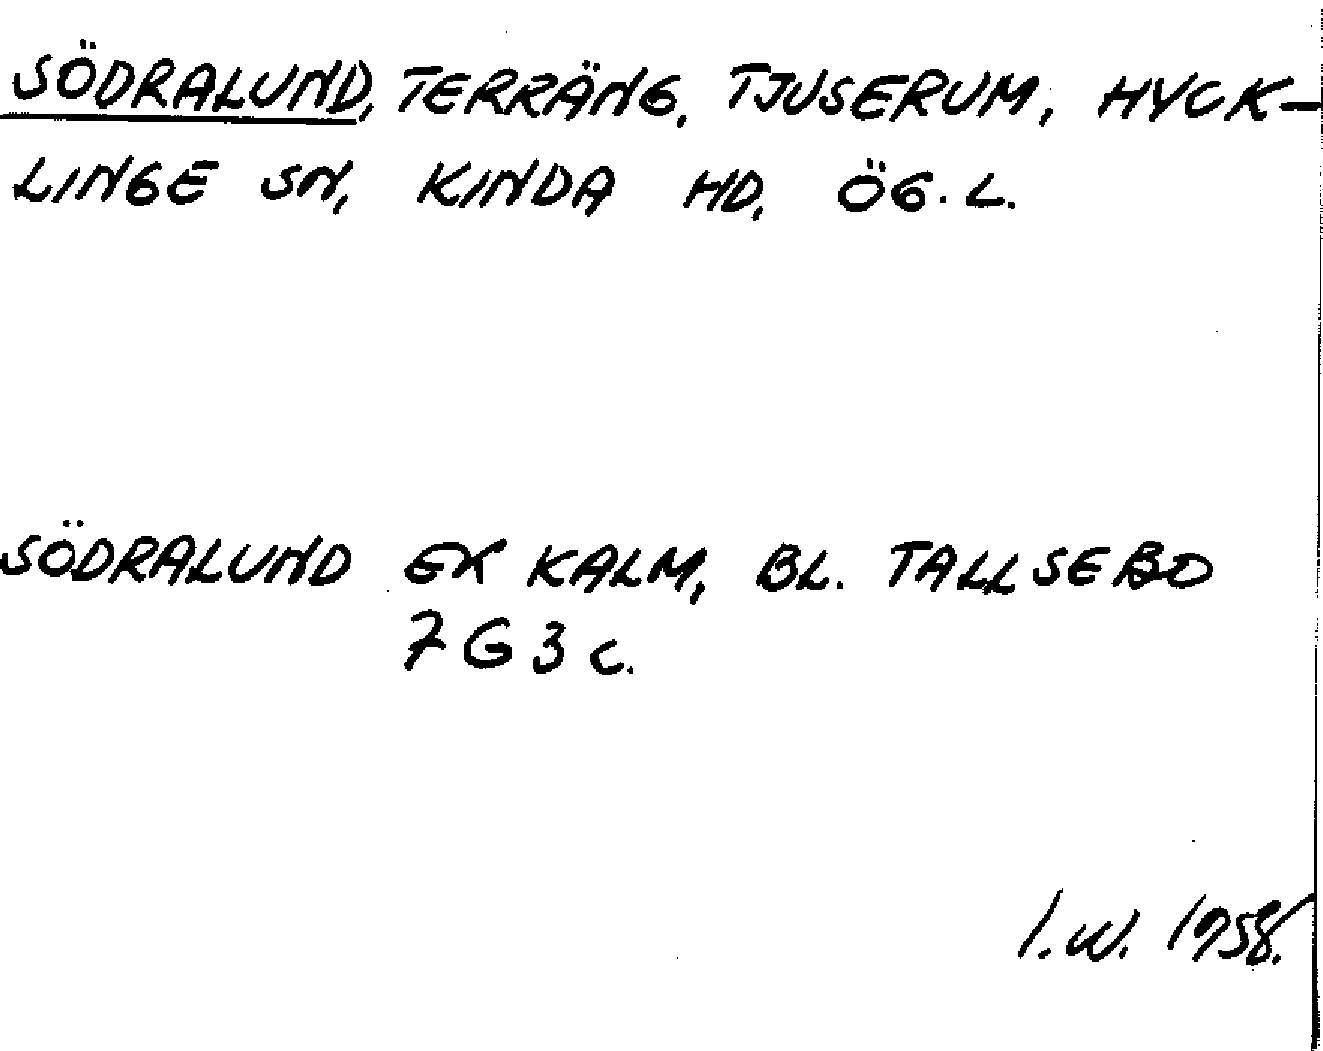 SÖDRALUND, TERRÄNG, TJUSERUM, HYCK-
LINGE SN, KINDA HD, ÖG. L.
SÖDRALUND EK KALM, BL. TALLSEBO
7 G 3 c.
I. W. 1958.